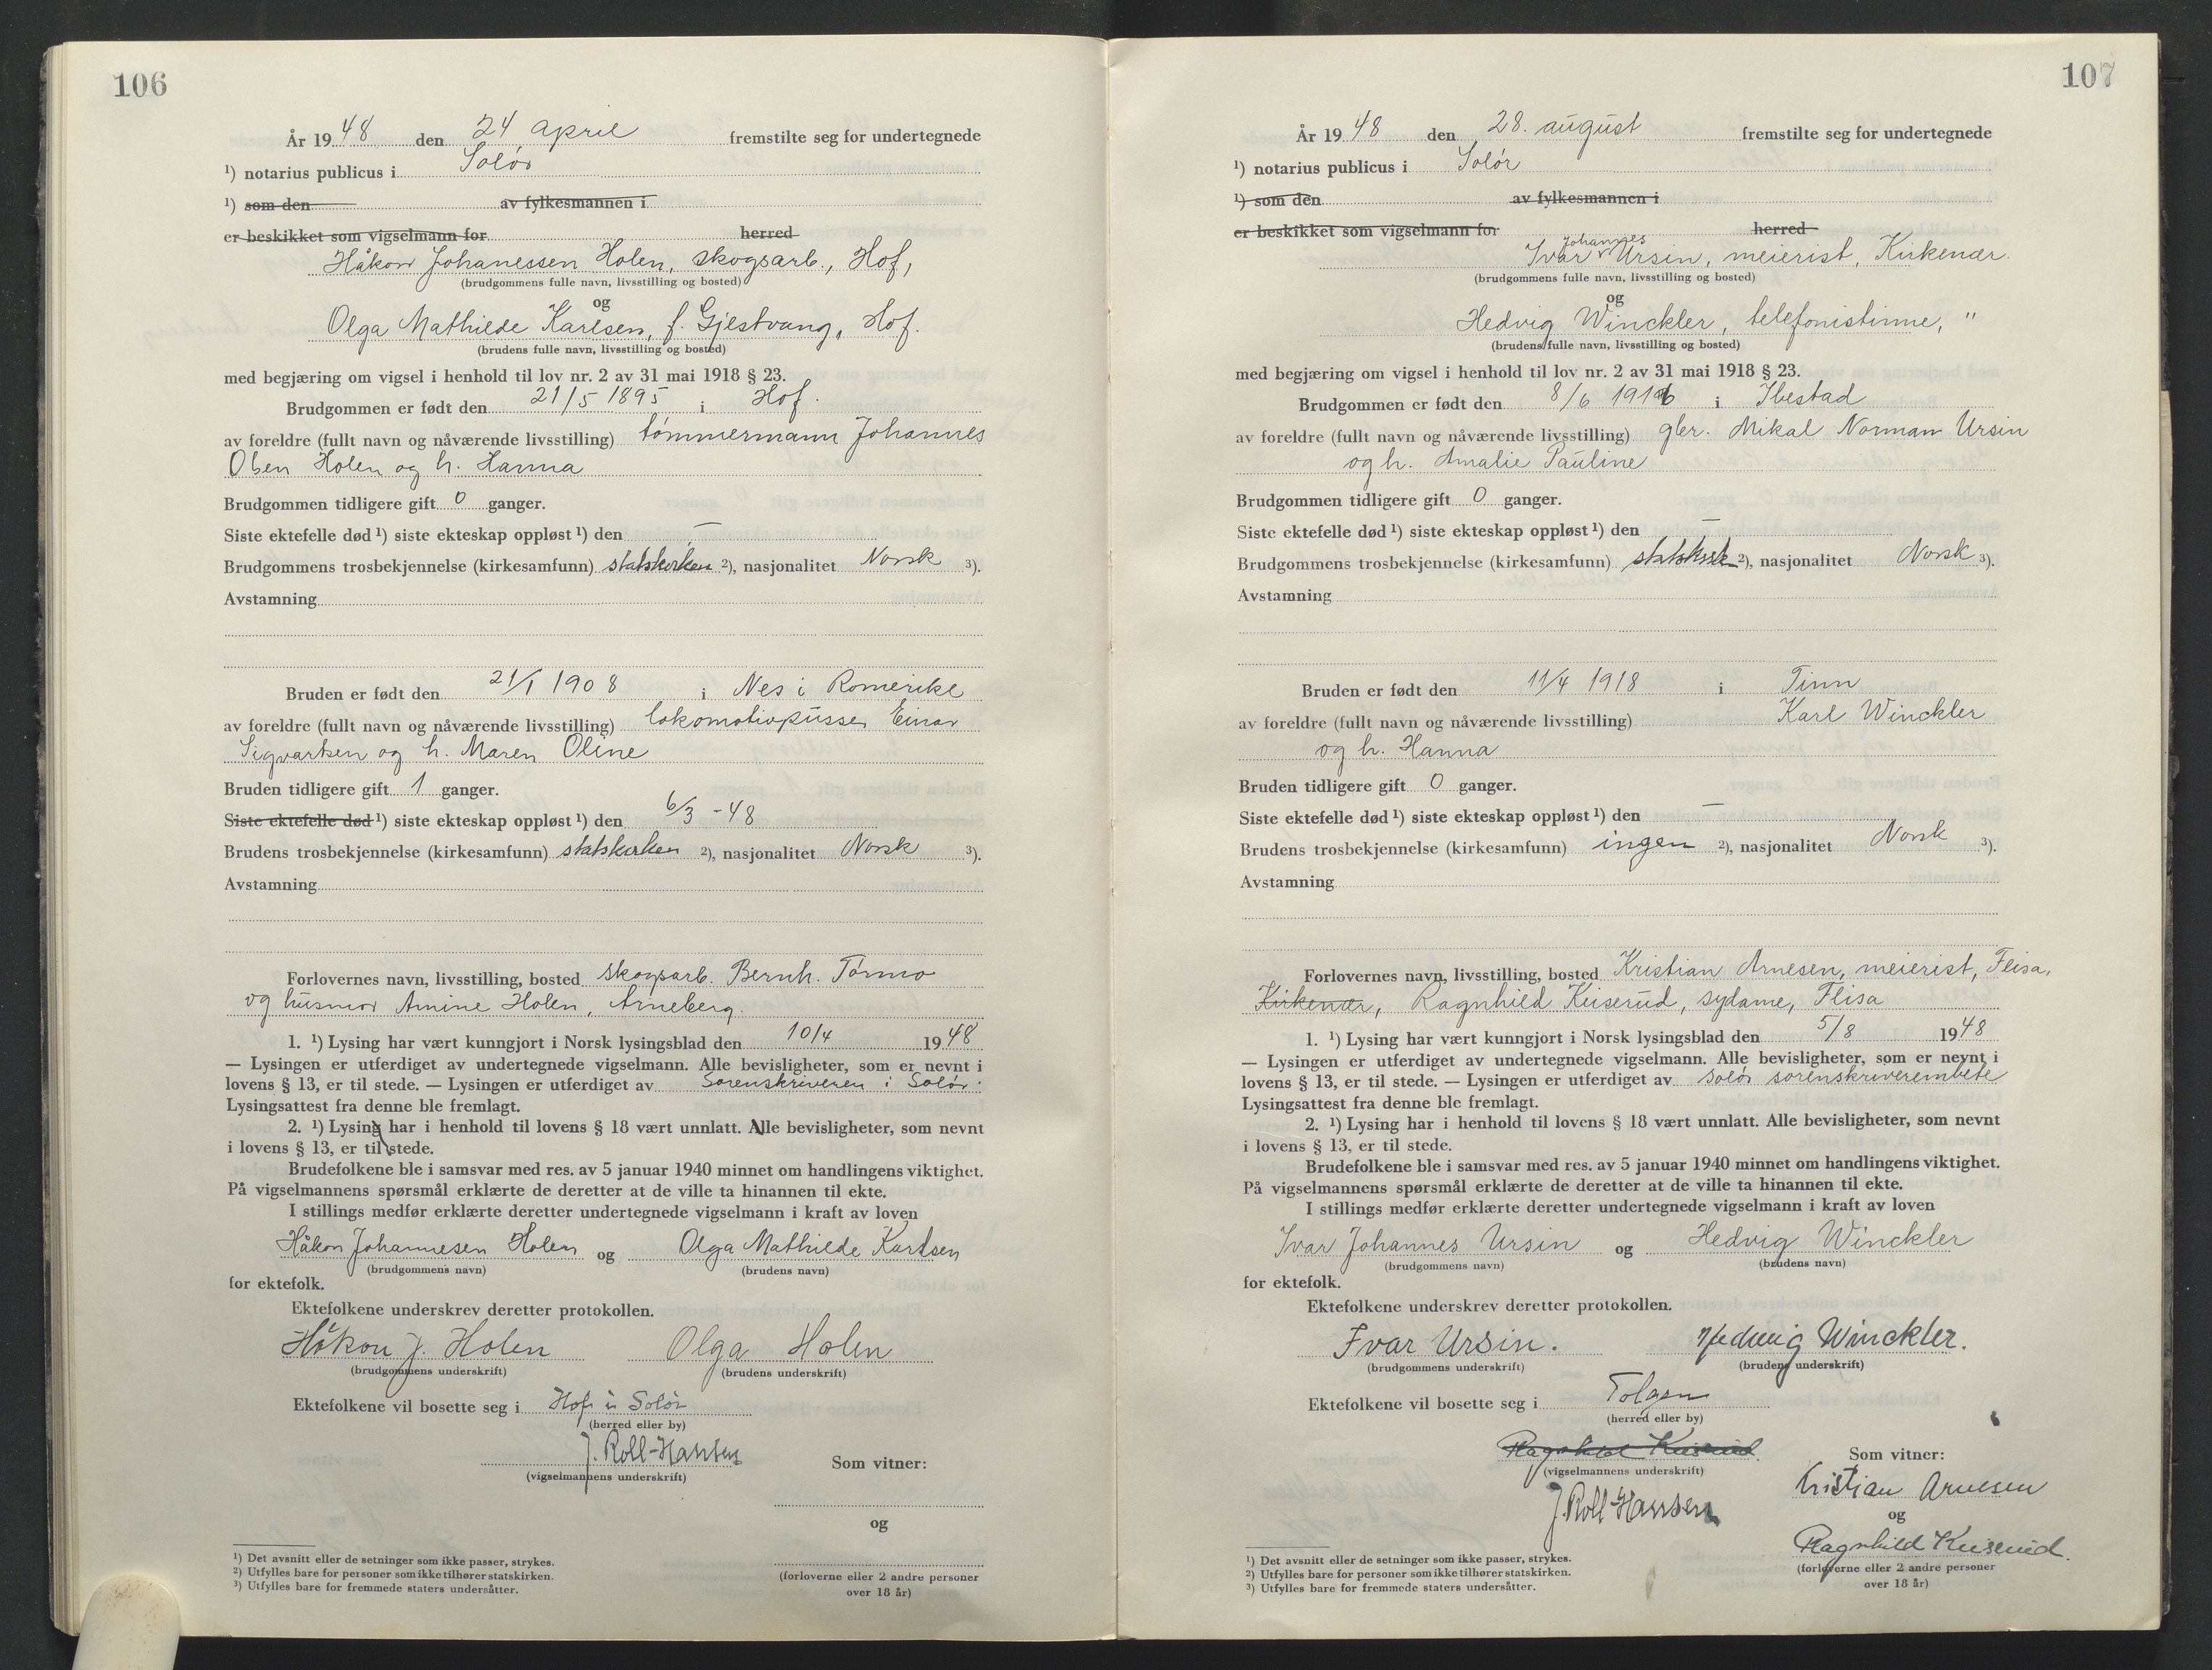 106
År 1948 den 24 april fremstilte seg for undertegnede
¹) notarius publicus i Solør
¹) som den av fylkesmannen i
er beskikket som vigselmann for herred
Håkon Johanessen Holen, skogsarb., Hof,
(brudgommens fulle navn, livsstilling og bosted)
og
Olga Mathilde Karlsen, f. Gjestvang, Hof.
(brudens fulle navn, livsstilling og bosted)
med begjæring om vigsel i henhold til lov nr. 2 av 31 mai 1918 § 23.
Brudgommen er født den 21/5 1895 i Hof.
av foreldre (fullt navn og nåværende livsstilling) tømmermann Johannes
Olsen Holen og h. Hanna
Brudgommen tidligere gift 0 ganger.
Siste ektefelle død ¹) siste ekteskap oppløst ¹) den —
Brudgommens trosbekjennelse (kirkesamfunn) statskirken ²), nasjonalitet Norsk ³).
Avstamning
Bruden er født den 21/1 1908 i Nes i Romerike
av foreldre (fullt navn og nåværende livsstilling) lokomotivpusser Einar
Sigvartsen og h. Maren Oline
Bruden tidligere gift 1 ganger.
Siste ektefelle død ¹) siste ekteskap oppløst ¹) den 6/3 -48
Brudens trosbekjennelse (kirkesamfunn) statskirken ²), nasjonalitet Norsk ³).
Avstamning
Forlovernes navn, livsstilling, bosted skogsarb. Bernh. Tørmo
og husmor Amine Holen, Arneberg.
1. ¹) Lysing har vært kunngjort i Norsk lysingsblad den 10/4 1948
— Lysingen er utferdiget av undertegnede vigselmann. Alle bevisligheter, som er nevnt i
lovens § 13, er til stede. — Lysingen er utferdiget av Sorenskriveren i Solør.
Lysingsattest fra denne ble fremlagt.
2. ¹) Lysing har i henhold til lovens § 18 vært unnlatt. Alle bevisligheter, som nevnt
i lovens § 13, er til stede.
Brudefolkene ble i samsvar med res. av 5 januar 1940 minnet om handlingens viktighet.
På vigselmannens spørsmål erklærte de deretter at de ville ta hinannen til ekte.
I stillings medfør erklærte deretter undertegnede vigselmann i kraft av loven
Håkon Johannesen Holen og Olga Mathilde Karlsen
(brudgommens navn) (brudens navn)
for ektefolk.
Ektefolkene underskrev deretter protokollen.
Håkon J. Holen Olga Holen
(brudgommens underskrift) (brudens underskrift)
Ektefolkene vil bosette seg i Hof i Solør
(herred eller by)
J. Roll-Hansen
(vigselmannens underskrift) Som vitner:
og
¹) Det avsnitt eller de setninger som ikke passer, strykes.
²) Utfylles bare for personer som ikke tilhører statskirken.
³) Utfylles bare for fremmede staters undersåtter.
(forloverne eller 2 andre personer
over 18 år)
107
År 1948 den 28. august fremstilte seg for undertegnede
¹) notarius publicus i Solør
¹) som den av fylkesmannen i
er beskikket som vigselmann for herred
Johannes
Ivar Ursin, meierist, Kirkenær.
(brudgommens fulle navn, livsstilling og bosted)
og
Hedvig Winckler, telefonistinne, "
(brudens fulle navn, livsstilling og bosted)
med begjæring om vigsel i henhold til lov nr. 2 av 31 mai 1918 § 23.
Brudgommen er født den 8/6 1916 i Ibestad
av foreldre (fullt navn og nåværende livsstilling) gbr. Mikal Norman Ursin
og h. Amalie Pauline
Brudgommen tidligere gift 0 ganger.
Siste ektefelle død ¹) siste ekteskap oppløst ¹) den —
Brudgommens trosbekjennelse (kirkesamfunn) statskirk ²), nasjonalitet Norsk ³).
Avstamning
Bruden er født den 11/4 1918 i Tinn
av foreldre (fullt navn og nåværende livsstilling) Karl Winckler
og h. Hanna
Bruden tidligere gift 0 ganger.
Siste ektefelle død ¹) siste ekteskap oppløst ¹) den —
Brudens trosbekjennelse (kirkesamfunn) ingen ²), nasjonalitet Norsk ³).
Avstamning
Forlovernes navn, livsstilling, bosted Kristian Arnesen, meierist, Flisa,
Kirkenær, Ragnhild Kuiserud, sydame, Flisa
1. ¹) Lysing har vært kunngjort i Norsk lysingsblad den 5/8 1948
— Lysingen er utferdiget av undertegnede vigselmann. Alle bevisligheter, som er nevnt i
lovens § 13, er til stede. — Lysingen er utferdiget av Solør sorenskriverembete
Lysingsattest fra denne ble fremlagt.
2. ¹) Lysing har i henhold til lovens § 18 vært unnlatt. Alle bevisligheter, som nevnt
i lovens § 13, er til stede.
Brudefolkene ble i samsvar med res. av 5 januar 1940 minnet om handlingens viktighet.
På vigselmannens spørsmål erklærte de deretter at de ville ta hinannen til ekte.
I stillings medfør erklærte deretter undertegnede vigselmann i kraft av loven
Ivar Johannes Ursin og Hedvig Winckler
(brudgommens navn) (brudens navn)
for ektefolk.
Ektefolkene underskrev deretter protokollen.
Ivar Ursin. Hedwig Winckler.
(brudgommens underskrift) (brudens underskrift)
Ektefolkene vil bosette seg i Tolgen
(herred eller by)
Ragnhild Kuiserud
(vigselmannens underskrift) Som vitner:
J. Roll-Hansen
Kristian Arnesen
og
Ragnhild Kuiserud.
(forloverne eller 2 andre personer
over 18 år)
¹) Det avsnitt eller de setninger som ikke passer, strykes.
²) Utfylles bare for personer som ikke tilhører statskirken.
³) Utfylles bare for fremmede staters undersåtter.